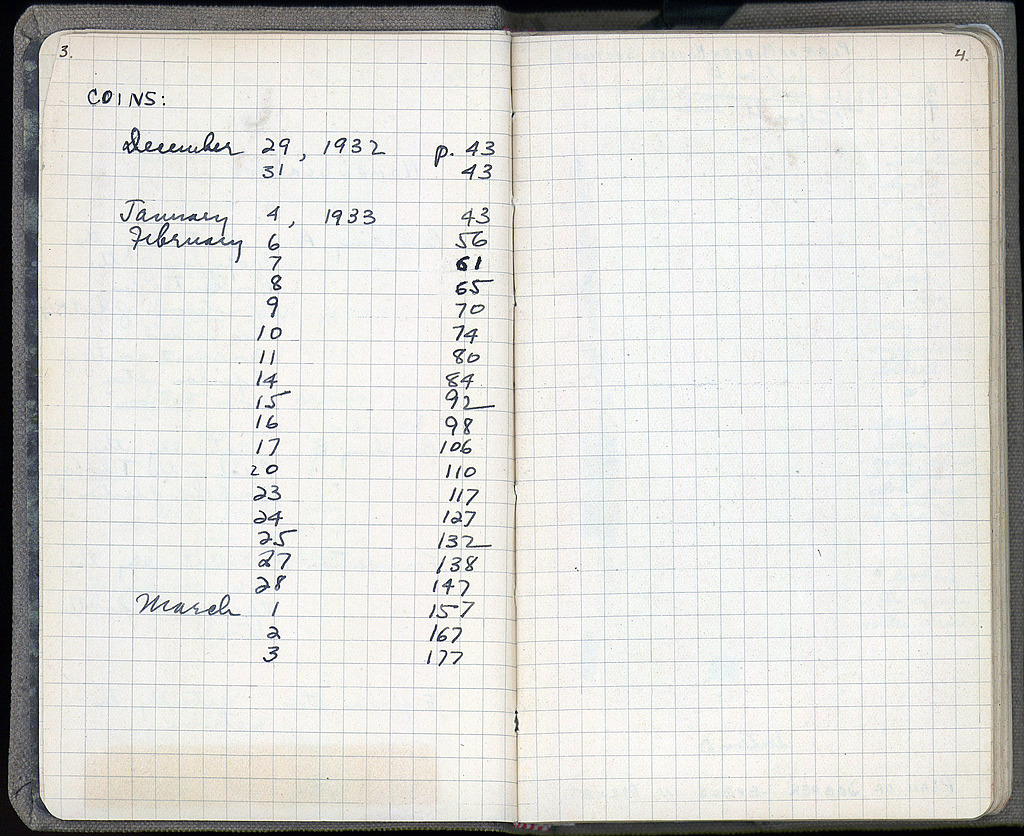 3.
COINS:
December 29, 1932 p. 43
31 43
January 4, 1933 43
February 6 56
7 61
8 65
9 70
10 74
11 80
14 84
15 92
16 98
17 106
20 110
23 117
24 127
25 132
27 138
28 147
March 1 157
2 167
3 177
4.